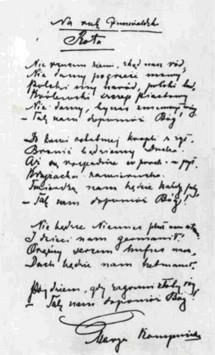 Na rok Grunwaldzki
Rota
Nie rzucim ziemi, skąd nasz ród,
Nie damy pogrześć mowy
Polski my naród, polski lud,
Królewski szczep piastowy
Nie damy, by nas zniemczył wróg
– Tak nam dopomóż Bóg!
Do krwi ostatniej kropli z żył
Bronić będziemy Ducha
Aż się rozpadnie w proch i pył
Krzyżacka zawierucha.
Twierdzą nam będzie każdy próg
– Tak nam dopomóż Bóg!
Nie będzie Niemiec pluł nam w twarz
I dzieci nam germanił.
Orężny hufiec nasz,
Duch będzie nam hetmanił,
Pójdziem, gdy zagrzmi złoty róg
– Tak nam dopomóż Bóg!
Marya Konopnicka